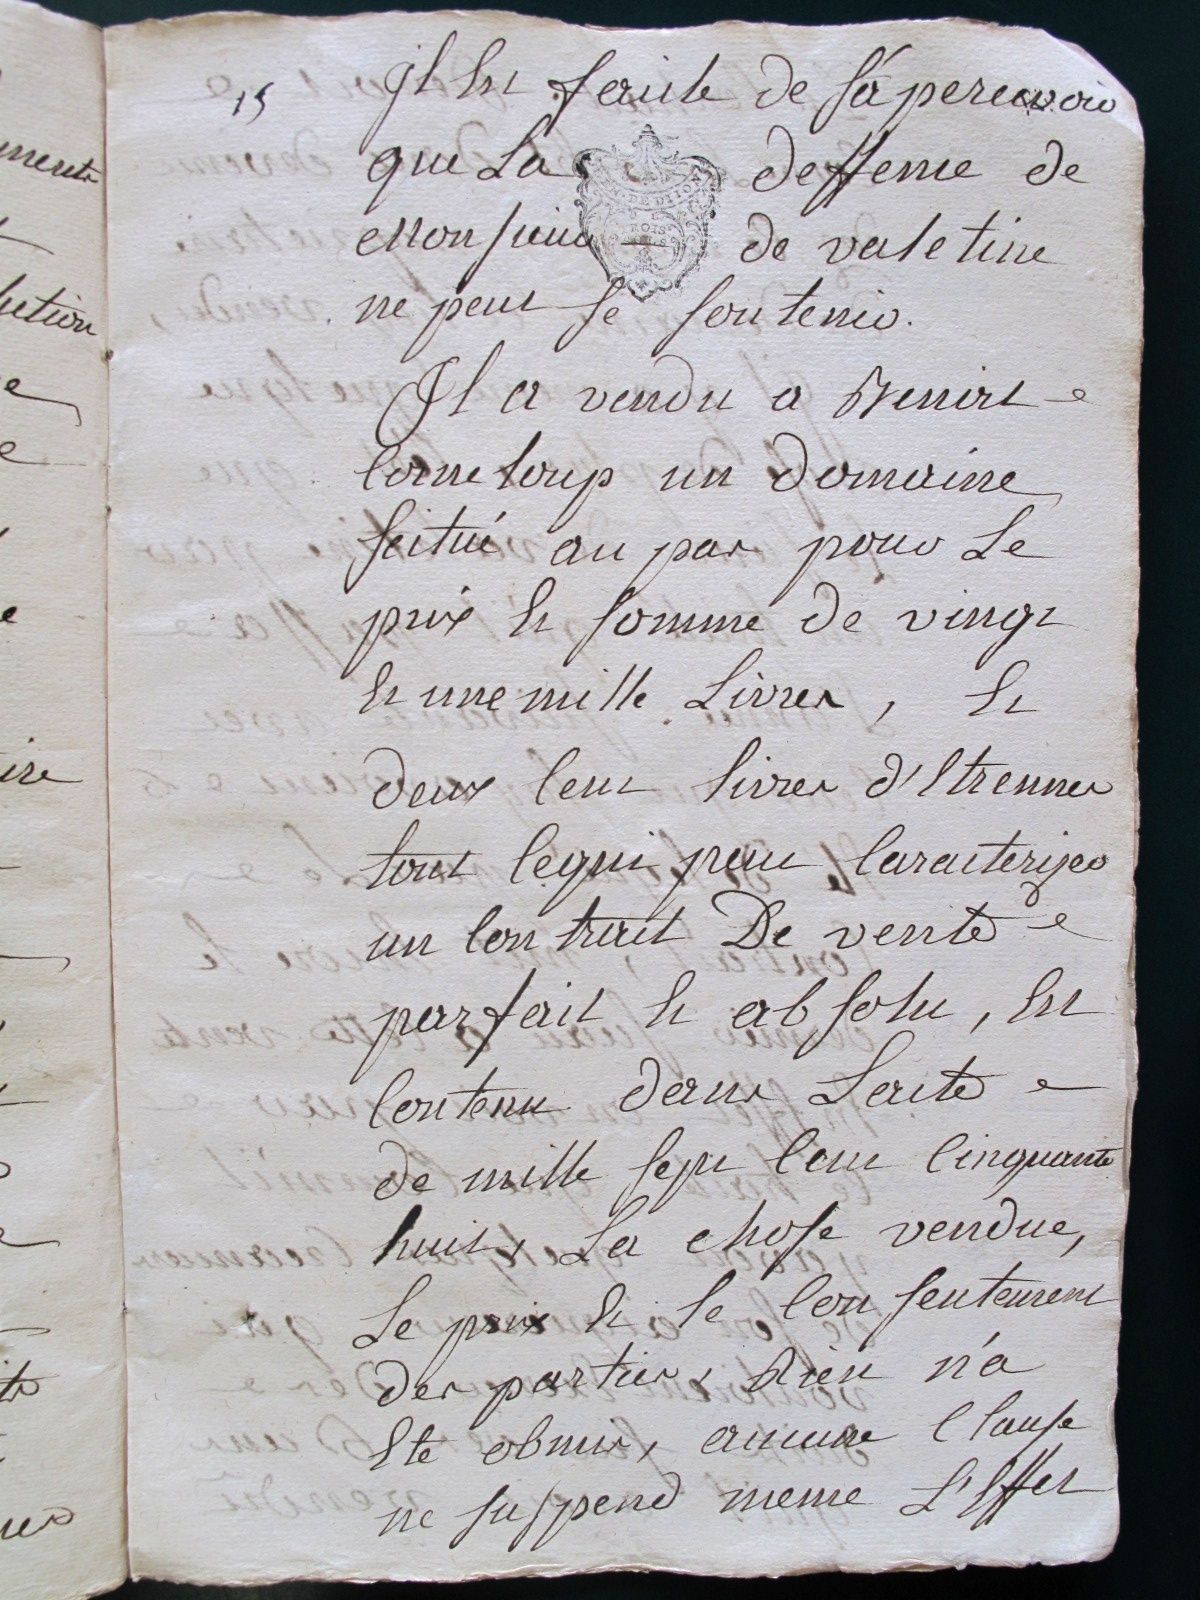 15
Il Est facile de s'apercevoir
que La deffense de
Monsieur de valetine
ne peut se soutenir.
GEN. DE DIJON
TROIS
SOLS
Il a vendu a Benoist
Corneloup un domaine
scitué au par pour Le
prix Et somme de vingt
Et une mille Livres, Et
deux Cent livres d'Etrennes
tout Ce qui peut Caracteriser
un Contract De vente
parfait Et absolu, Est
Contenu dans Lacte
de mille sept Cent Cinquante
huit, La chose vendue,
Le prix Et le Consentement
des parties, Rien n'a
Eté obmis, aucune Clause
ne suspend meme L'Effet